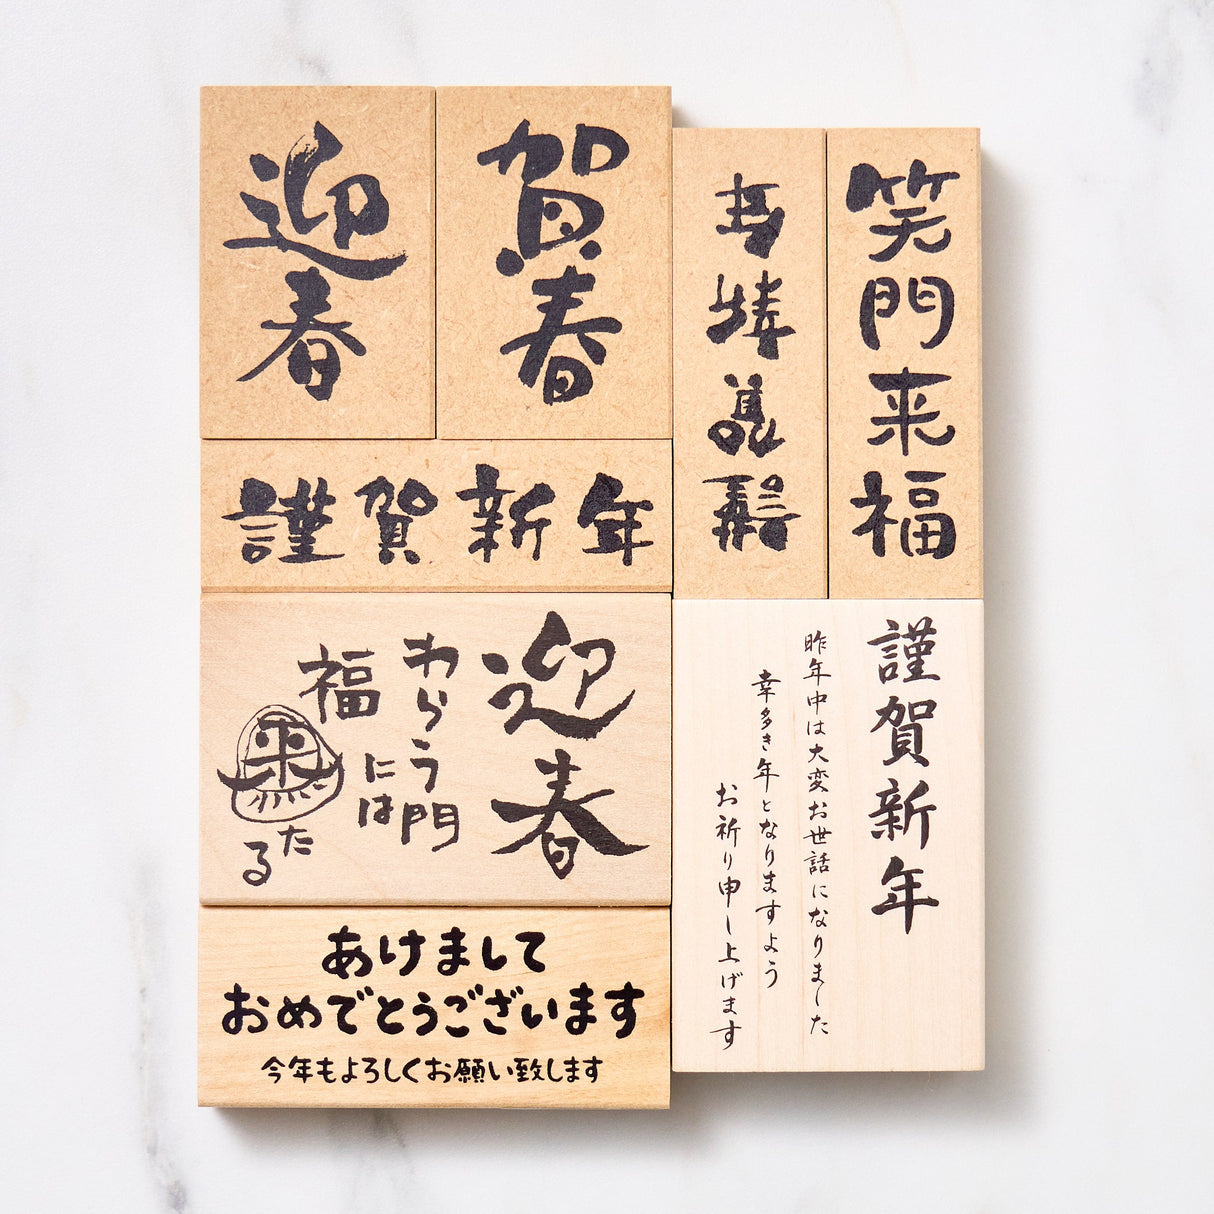 迎春
賀春
笑門来福
謹賀新年
迎春
わらう門
には
福来
たる
謹賀新年
昨年中は大変お世話になりました
幸多き年となりますよう
お祈り申し上げます
あけまして
おめでとうございます
今年もよろしくお願い致します